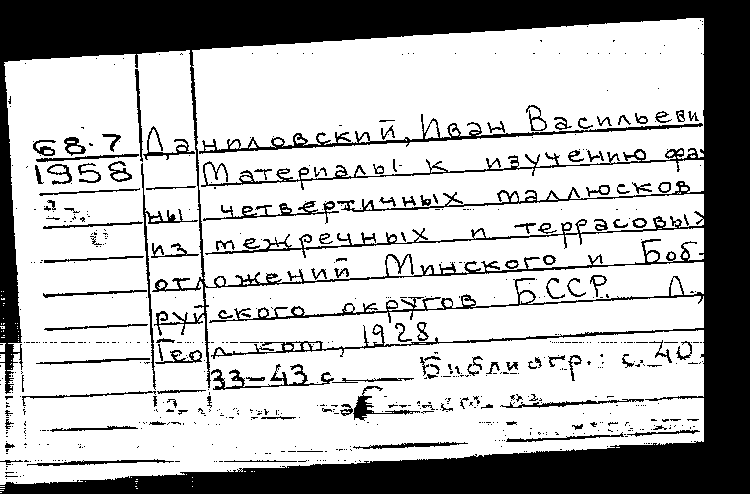 68.7 Даниловский, Иван Васильеви
1958 Материалы к изучению фа
ны четвертичных маллюсков
из межречных и террасовых
отложений Минского и Боб-
руйского округов БССР. Л.,
Геол. ком., 1928.
33-43 с. Библиогр.: с. 40.